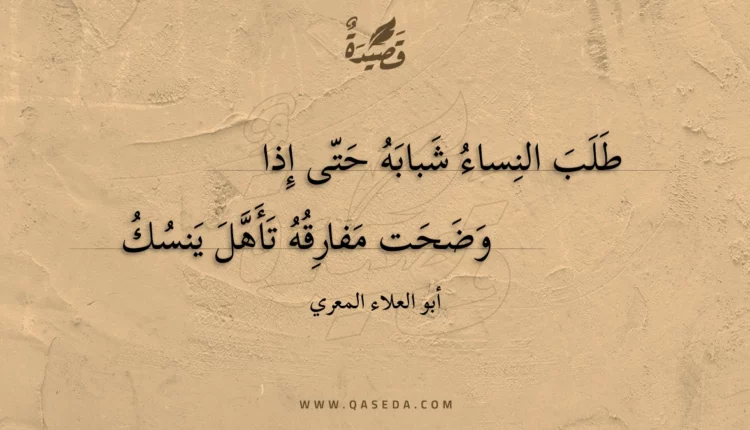 قَصِيدَةٌ
طَلَبَ النِساءُ شَبابَهُ حَتّى إِذا
وَضَحَت مَفارِقُهُ تَأَهَّلَ يَنسُكُ
أبو العلاء المعري
WWW.QASEDA.COM